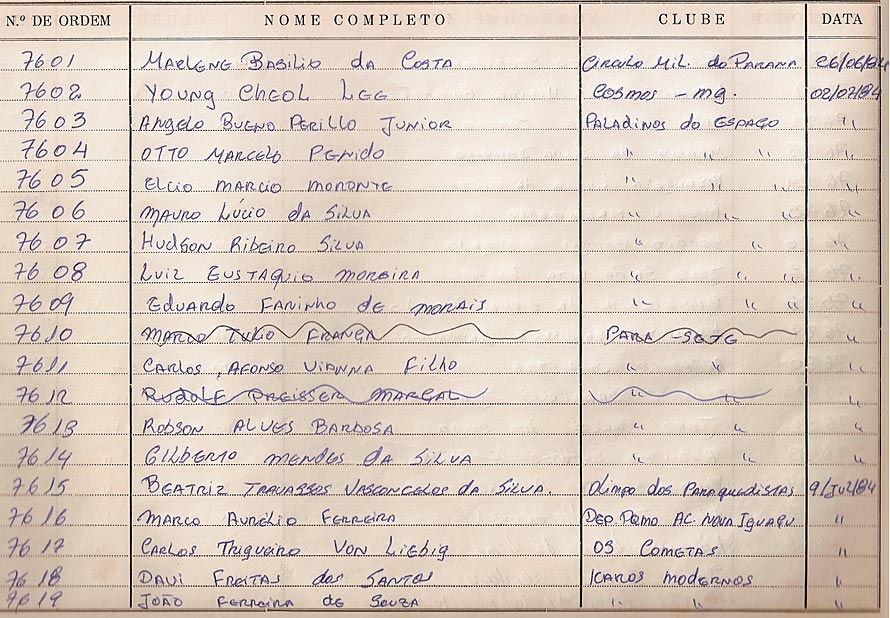 N.º DE ORDEM NOME COMPLETO CLUBE DATA
7601 Marlene Basilio da Costa Circulo Mil. do Parana 26/06/84
7602 Young Cheol Lee Cosmos - mg. 02/07/84
7603 Angelo Bueno Perillo Junior Paladinos do Espaço "
7604 Otto Marcelo Penido " " " "
7605 Elcio Marcio Moronte " " " "
7606 Mauro Lúcio da Silva " " " "
7607 Hudson Ribeiro Silva " " " "
7608 Luiz Eustaquio Moreira " " " "
7609 Eduardo Faninho de Morais " " " "
7610 Marco Tulio França Para-Sete "
7611 Carlos Afonso Vianna Filho " " "
7612 Rudolf Preisser Marcal " " "
7613 Robson Alves Barbosa " " "
7614 Gilberto Mendes da Silva " " "
7615 Beatriz Travassos Vasconcelos da Silva. Olimpo dos Paraquedistas 9/Jul/84
7616 Marco Aurélio Ferreira Dep. Ac. Nova Iguaçu "
7617 Carlos Trigueiro Von Liebig Os Cometas "
7618 Davi Freitas dos Santos Icaros Modernos "
7619 João Ferreira de Souza " " "